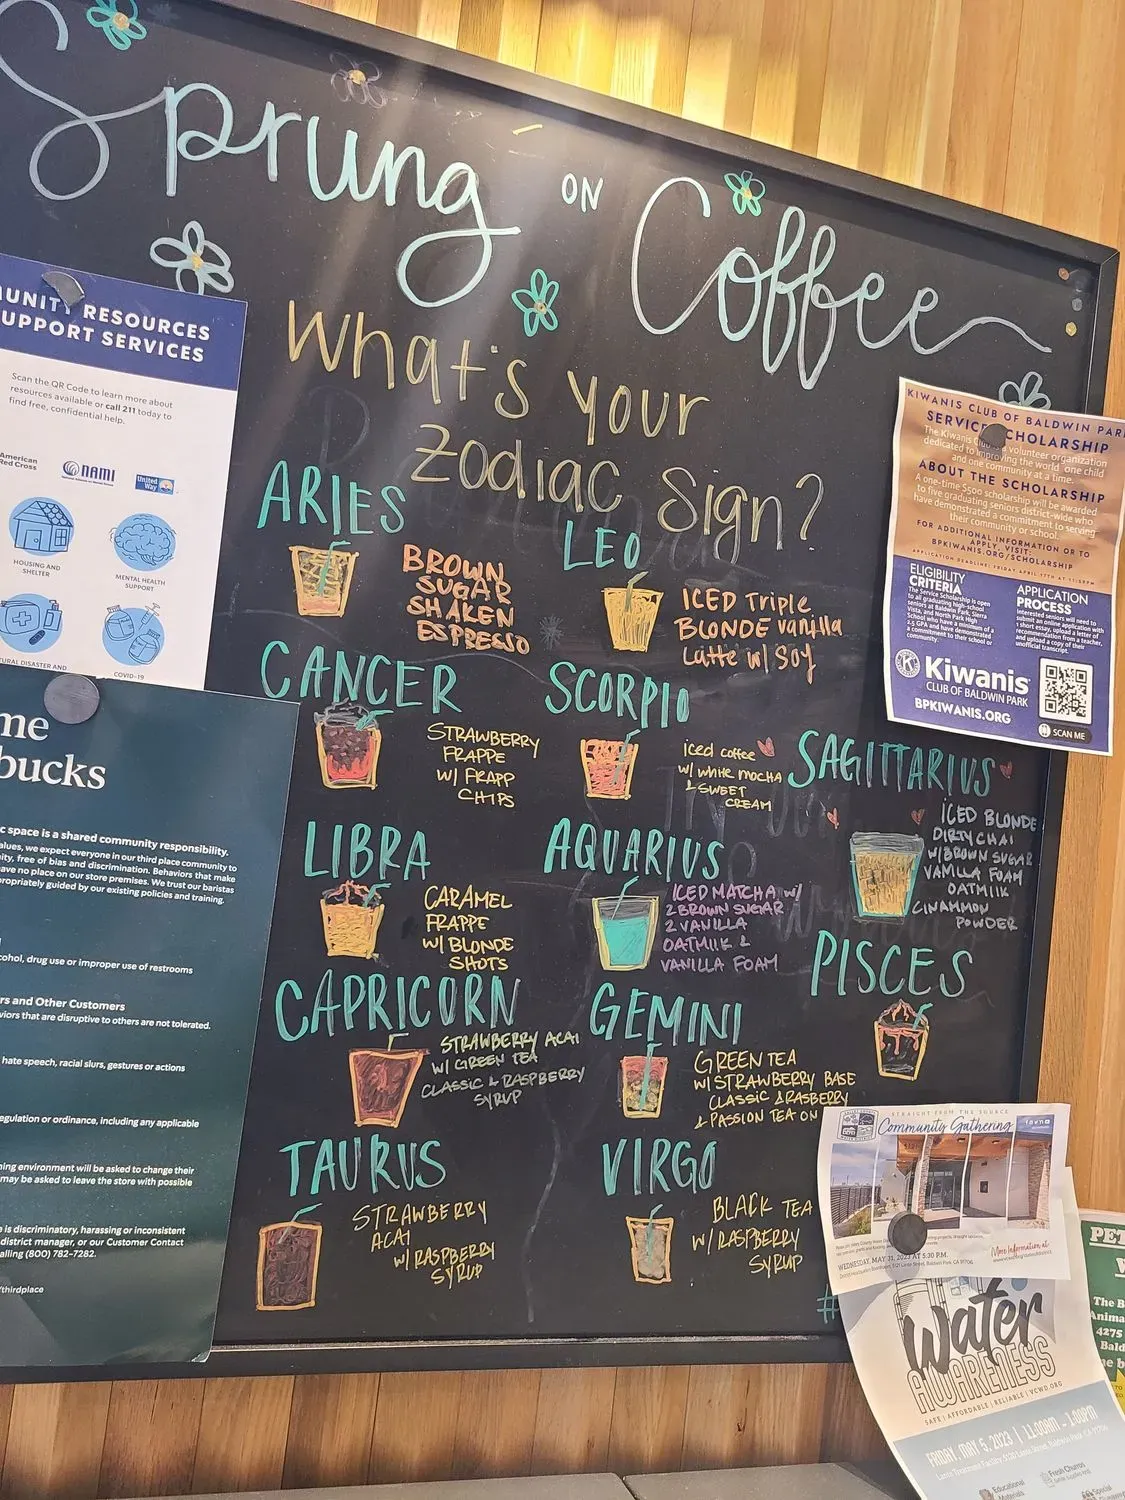 Sprung ON Coffee
What's your
zodiac sign?
ARIES
BROWN
SUGAR
SHAKEN
ESPRESSO
LEO
ICED Triple
BLONDE vanilla
Latte w/ Soy
CANCER
STRAWBERRY
FRAPPE
W/ FRAPP
CHIPS
SCORPIO
iced coffee
w/ white mocha
& SWEET
CREAM
SAGITTARIUS
ICED BLONDE
DIRTY CHAI
W/BROWN SUGAR
VANILLA FOAM
OATMILK
CINAMMON
POWDER
LIBRA
CARAMEL
FRAPPE
W/ BLONDE
SHOTS
AQUARIUS
ICED MATCHA w/
2 BROWN SUGAR
2 VANILLA
OATMILK &
VANILLA FOAM
PISCES
CAPRICORN
STRAWBERRY ACAI
W/ GREEN TEA
CLASSIC & RASPBERRY
SYRUP
GEMINI
GREEN TEA
W/ STRAWBERRY BASE
CLASSIC & RASBERRY
& PASSION TEA ON
TAURUS
STRAWBERRY
ACAI
W/ RASPBERRY
SYRUP
VIRGO
BLACK TEA
W/ RASPBERRY
SYRUP
#
UNITY RESOURCES
UPPORT SERVICES
Scan the QR Code to learn more about
resources available or call 211 today to
find free, confidential help.
American
Red Cross
NAMI
United
Way
HOUSING AND
SHELTER
MENTAL HEALTH
SUPPORT
URAL DISASTER AND
COVID-19
me
bucks
c space is a shared community responsibility.
alues, we expect everyone in our third place community to
ity, free of bias and discrimination. Behaviors that make
ave no place on our store premises. We trust our baristas
propriately guided by our existing policies and training.
cohol, drug use or improper use of restrooms
rs and Other Customers
viors that are disruptive to others are not tolerated.
hate speech, racial slurs, gestures or actions
egulation or ordinance, including any applicable
ning environment will be asked to change their
may be asked to leave the store with possible
e is discriminatory, harassing or inconsistent
district manager, or our Customer Contact
alling (800) 782-7282.
/thirdplace
KIWANIS CLUB OF BALDWIN PARK
SERVICE SCHOLARSHIP
The Kiwanis Club is a volunteer organization
dedicated to improving the world one child
and one community at a time.
ABOUT THE SCHOLARSHIP
A one-time $500 scholarship will be awarded
to five graduating seniors district-wide who
have demonstrated a commitment to serving
their community or school.
FOR ADDITIONAL INFORMATION OR TO
APPLY, VISIT:
BPKIWANIS.ORG/SCHOLARSHIP
APPLICATION DEADLINE: FRIDAY, APRIL 17TH AT 11:59PM
ELIGIBILITY
CRITERIA
The Service Scholarship is open
to all graduating high-school
seniors at Baldwin Park, Sierra
Vista, and North Park High
School who have a minimum of a
2.5 GPA and have demonstrated
a commitment to their school or
community.
APPLICATION
PROCESS
Interested seniors will need to
submit an online application with
1 short essay, upload a letter of
recommendation from a teacher,
and upload a copy of their
unofficial transcript.
Kiwanis
CLUB OF BALDWIN PARK
BPKIWANIS.ORG
SCAN ME
STRAIGHT FROM THE SOURCE
Community Gathering
WEDNESDAY, MAY 31, 2023 AT 5:30 P.M.
More Information at:
Water
AWARENESS
SAFE | AFFORDABLE | RELIABLE | VCWD.ORG
FRIDAY, MAY 5, 2023 | 11:00AM - 1:00PM
Educational
Materials
Fresh Churros
Special
PET
The B
Anima
4275
Bald